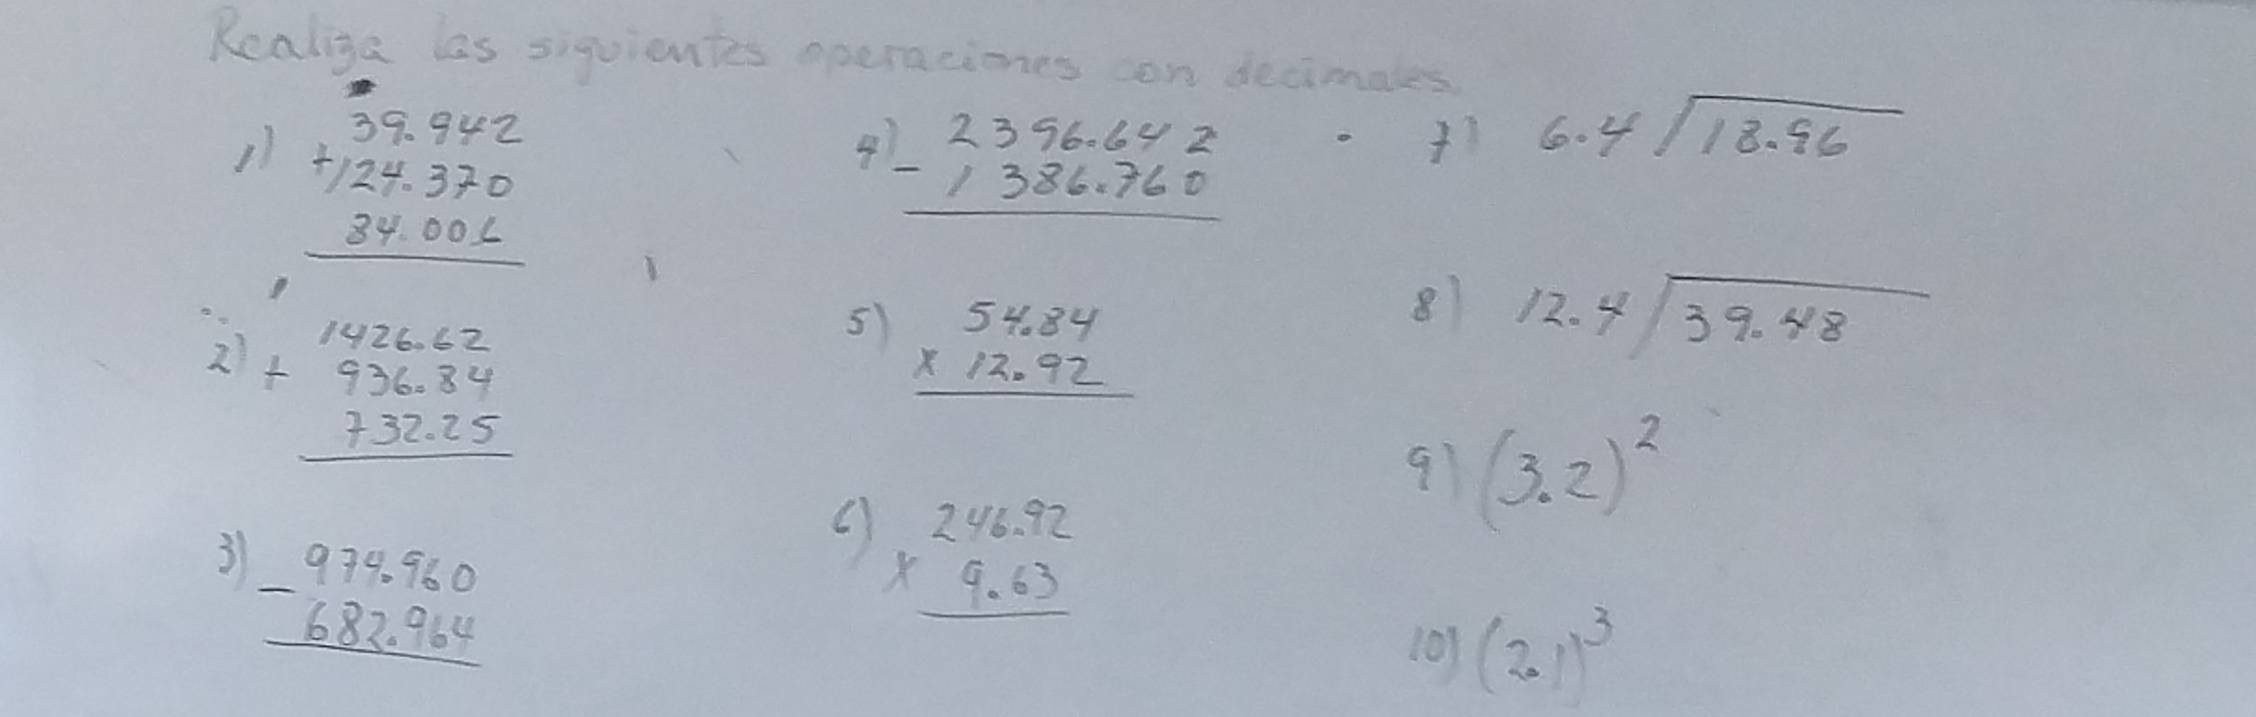 Realiza las siguientes operaciones con decimales
1) 39.942
+124.370
84.006
2) 1426.62
+ 936.84
732.25
3) 974.960
- 682.964
4) 2396.642
- 1386.760
5) 54.84
x 12.92
6) 246.92
x 9.63
7) 6.4 18.96
8) 12.4 39.48
9) (3.2)²
10) (2.1)³